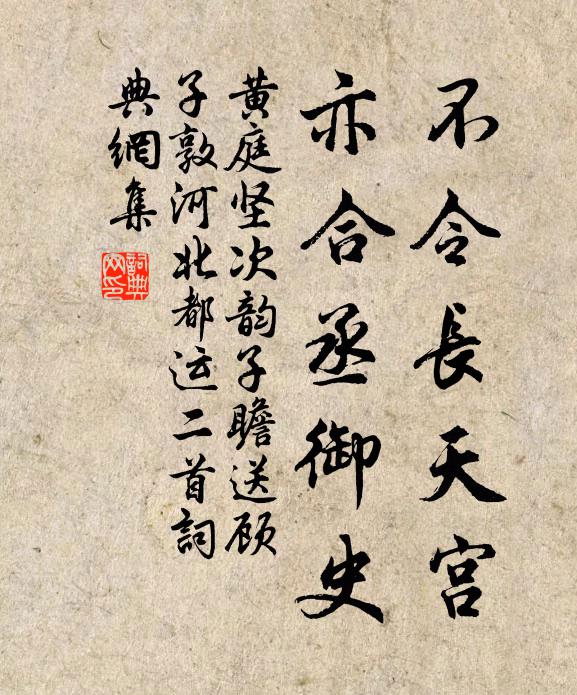 不令長天宫
亦合丞御史
黄庭坚次韵子瞻送顾
子敦河北都运二首詞
典網集
詞典
网印